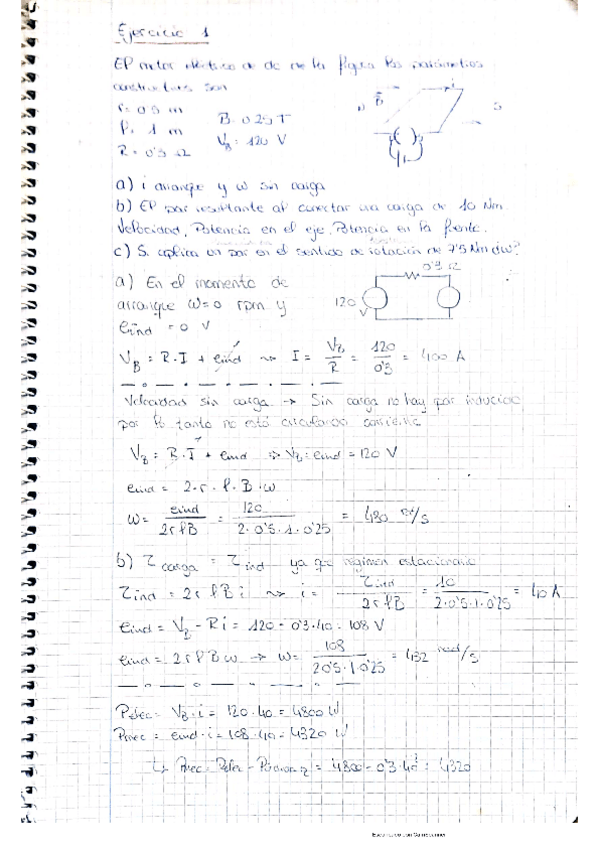 Ejercicio 1
El motor eléctrico de de la figura los parámetros
constructivos son
r = 0'5 m
l = 1 m
R = 0'3 Ω
B = 0'25 T
V_B = 120 V
B
i
S
a) i arranque y ω sin carga
b) El par resultante al conectar una carga de 10 Nm.
Velocidad, Potencia en el eje, Potencia en la fuente.
c) Si aplica un par en el sentido de rotación de 7'5 Nm ¿ω?
a) En el momento de
arranque ω=0 rpm y
e_ind = 0 V
0'3 Ω
120
V
V_B = R·I + e_ind ⇝ I = V_B/R = 120/0'3 = 400 A
Velocidad sin carga → Sin carga no hay par inducido
por lo tanto no está circulando corriente
V_B = R·I + e_ind ⇒ V_B = e_ind = 120 V
e_ind = 2·r·l·B·ω
ω = e_ind/2rlB = 120/2·0'5·1·0'25 = 480 rad/s
b) τ_carga = τ_ind ya que régimen estacionario
τ_ind = 2rlBi ⇝ i = τ_ind/2rlB = 10/2·0'5·1·0'25 = 40 A
e_ind = V_B - Ri = 120 - 0'3·40 = 108 V
e_ind = 2rlBω → ω = 108/2·0'5·1·0'25 = 432 rad/s
Pelec = V_B·i = 120·40 = 4800 W
Pmec = e_ind·i = 108·40 = 4320 W
↳ Pmec = Pelec - = 4800 - 0'3·40² = 4320
Escaneado con CamScanner